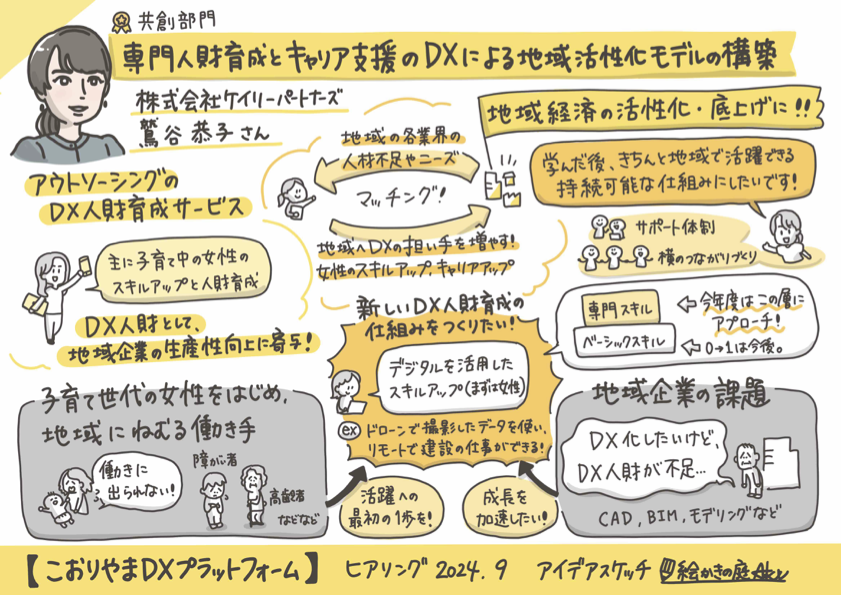 共創部門
専門人財育成とキャリア支援のDXによる地域活性化モデルの構築
株式会社ケイリーパートナーズ
鷲谷 恭子さん
アウトソーシングの
DX人財育成サービス
主に子育て中の女性の
スキルアップと人財育成
DX人財として、
地域企業の生産性向上に寄与!
地域の各業界の
人材不足やニーズ
マッチング!
地域へDXの担い手を増やす!
女性のスキルアップ、キャリアアップ
地域経済の活性化・底上げに!!
学んだ後、きちんと地域で活躍できる
持続可能な仕組みにしたいです!
サポート体制
横のつながりづくり
専門スキル
ベーシックスキル
今年度はこの層に
アプローチ!
0→1は今後。
新しいDX人財育成の
仕組みをつくりたい!
デジタルを活用した
スキルアップ(まずは女性)
ex ドローンで撮影したデータを使い、
リモートで建設の仕事ができる!
子育て世代の女性をはじめ、
地域にねむる働き手
働きに
出られない!
障がい者
高齢者
などなど
活躍への
最初の1歩を!
成長を
加速したい!
地域企業の課題
DX化したいけど、
DX人財が不足…
CAD, BIM, モデリングなど
【こおりやまDXプラットフォーム】 ヒアリング 2024.9 アイデアスケッチ 絵かきの庭